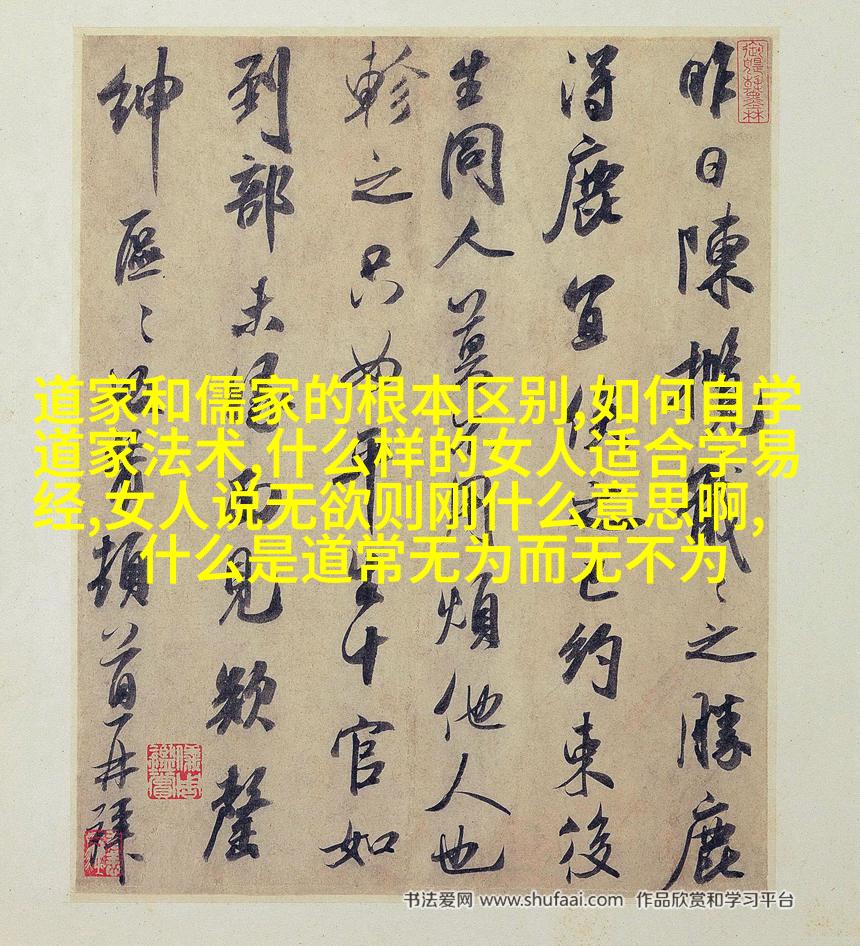 道家和儒家的根本区别,如何自学
道家法术,什么样的女人适合学易
经,女人说无欲则刚什么意思啊,
什么是道常无为而无不为
昨日陳戢〻之勝鹿
得鹿宜已約束後
生同人莫用煩他人也
軫之只如平生十官如
到部未面見欲罄
紳區〻頓首再拜
书法爱网 www.shufaai.com 作品欣赏和学习平台